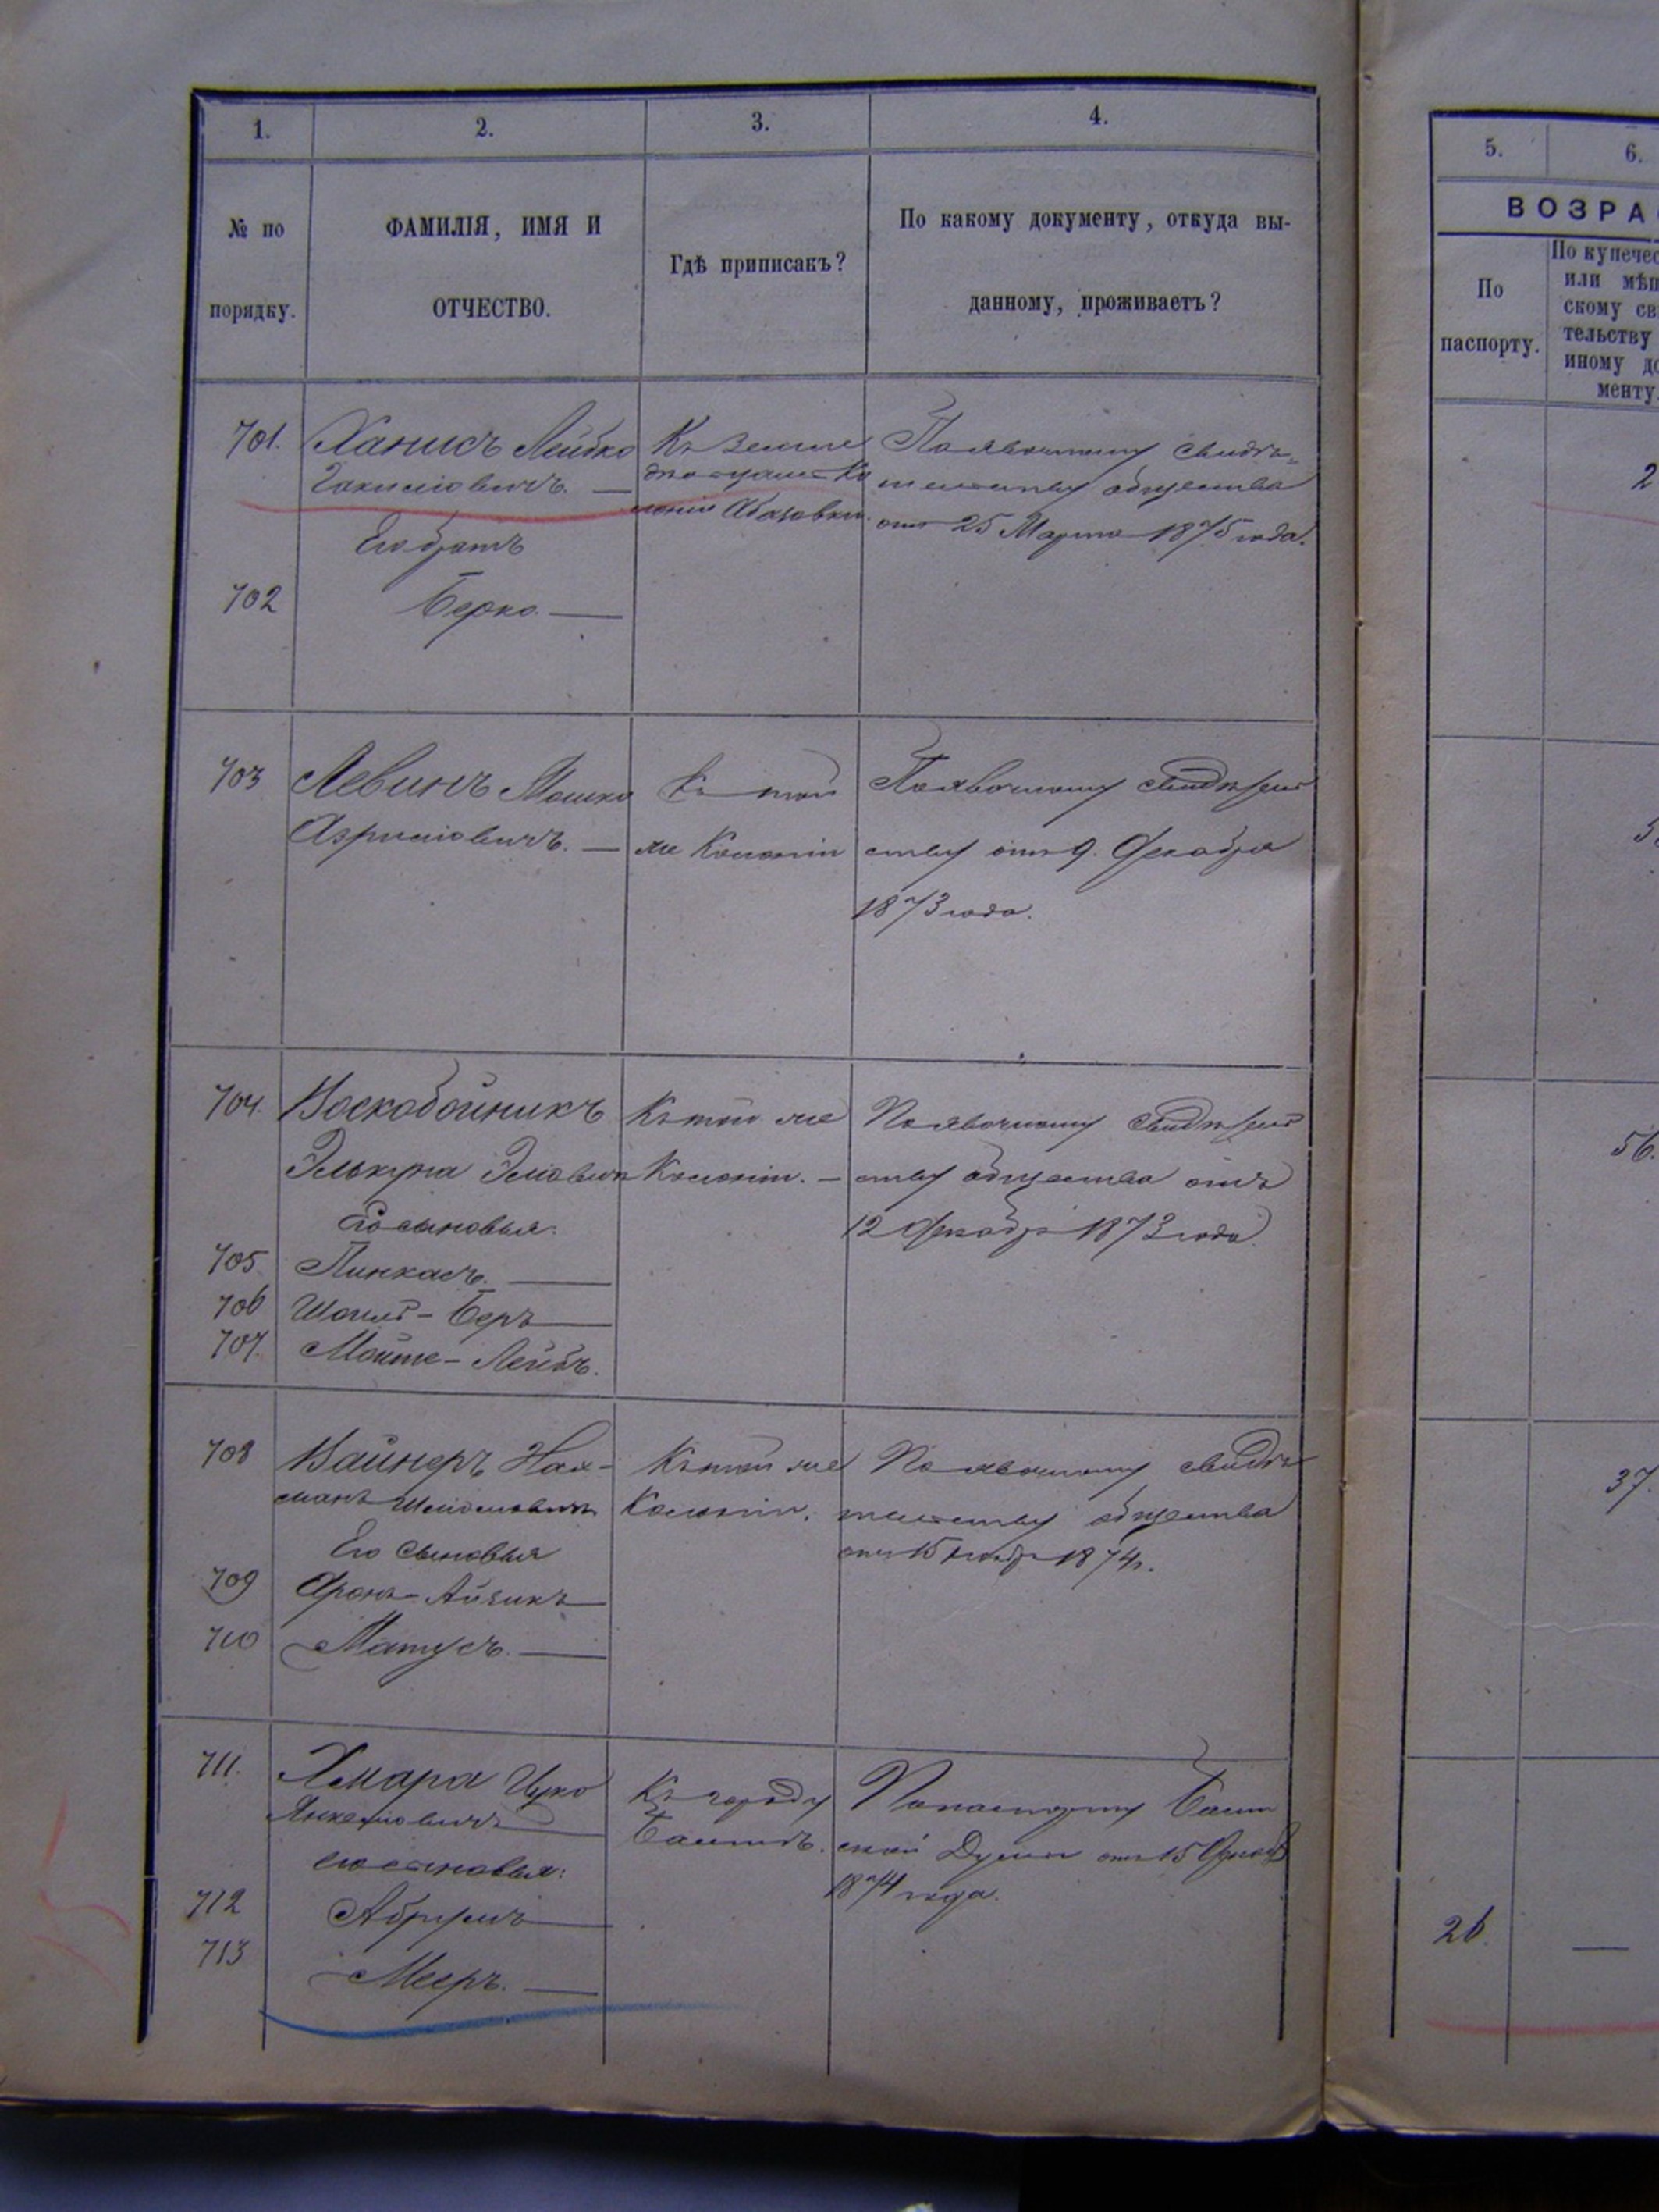 1. 2. 3. 4.
№ по порядку.
ФАМИЛІЯ, ИМЯ И
ОТЧЕСТВО.
Гдѣ приписакъ?
По какому документу, откуда вы-
данному, проживаетъ?
701. Ханисъ Лейбко
Его братъ
702 Берко. —
Къ земле
дѣльческ
лоніи Абазовки.
По явочному свидѣ-
тельству общества
отъ 25 Марта 1875 года.
703 Левинъ Мошко
Азриліовичъ. —
Къ той
же Колоніи
По явочному свидѣтель
ству отъ 9. Декабря
1873 года.
704. Воскобойникъ
Его сыновья:
705 Пинхасъ. —
706 Шоилъ-Беръ —
707. Мойше-Лейбъ.
Къ той же
Колоніи. —
По явочному свидѣтель
ству общества отъ
12 Декабр 1873 года
708 Вайнеръ Нах-
манъ
Его сыновья
709 Аронъ-Айзикъ —
710 Матусъ. —
Къ той же
Колоніи.
По явочному свидѣ
тельству общества
1874г.
711. Хмара Ицко
Янкеліовичъ
его сыновья:
712 Абрумъ —
713 Мееръ. —
Къ городу
Балтѣ.
По паспорту Балт
ской Думы отъ 15
1874 года.
5. 6.
ВОЗРА
По
паспорту.
По купечес
или мѣщ
скому св
тельству
иному до
менту.
2
56.
37.
26. —